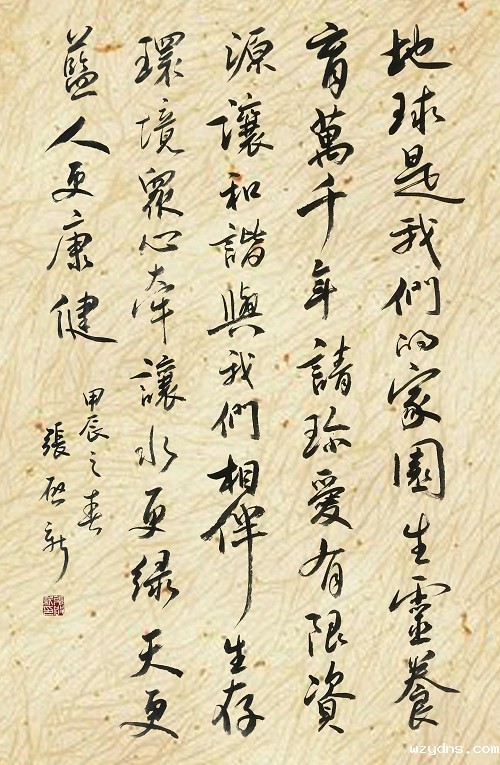 地球是我們的家園生靈養
育萬千年請珍愛有限資
源讓和諧與我們相伴生存
環境眾心牽讓水更綠天更
藍人更康健
甲辰之春
張啟新
wzydns.com